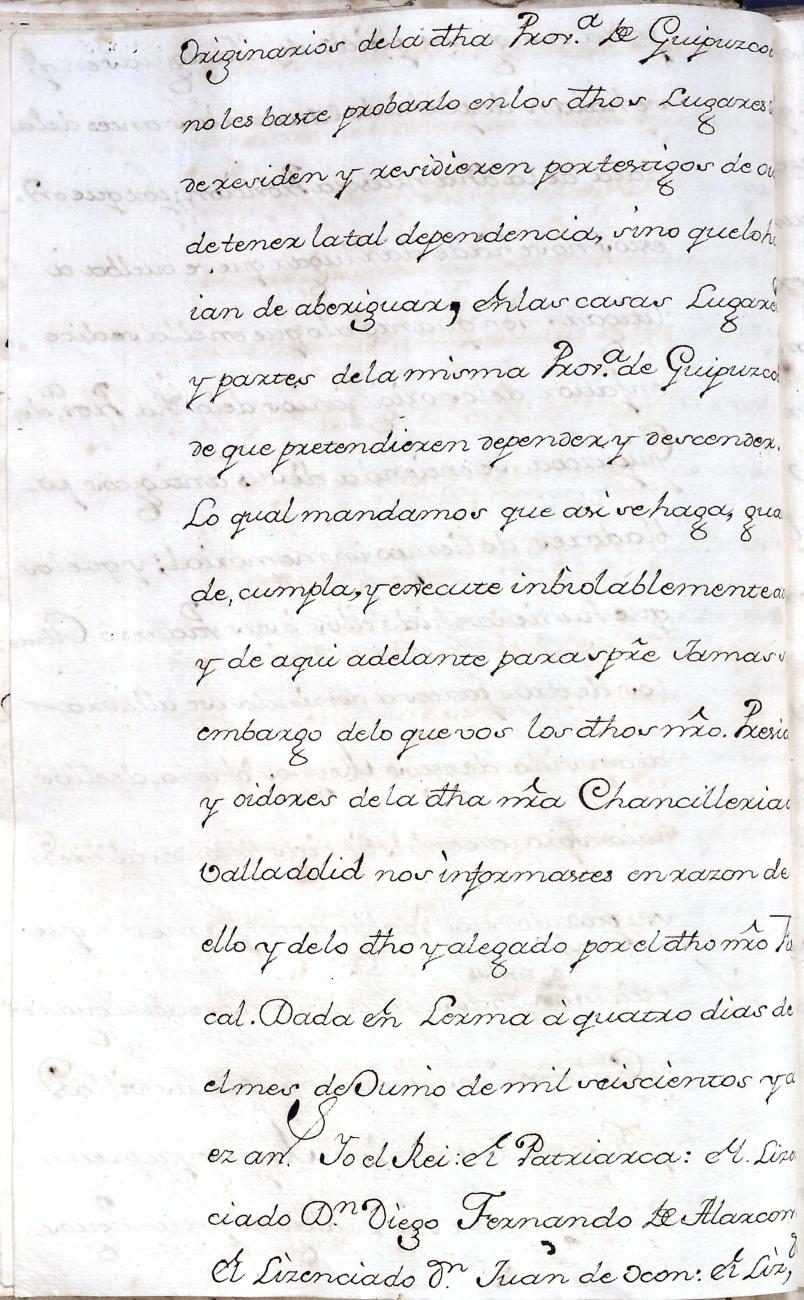 Originarios dela dha Prov.ª de Guipuzcoa
no les baste probarlo enlos dhos Lugares
de residen y residieren por testigos de oi
de tener la tal dependencia, sino quelo h
ian de aberiguar, en las casas Lugares
y partes dela misma Prov.ª de Guipuzcoa
de que pretendieren depender y descender.
Lo qual mandamos que asi se haga, gua
de, cumpla, y execute inbiolablemente a
y de aqui adelante para spre Jamas s
embargo delo que vos los dhos nro. Presid
y oidores dela dha nra Chancilleria
Valladolid nos informastes en razon de
ello y delo dho y alegado por el dho nro Fis
cal. Dada en Lerma à quatro dias de
el mes de Junio de mil seiscientos y d
ez an.s Yo el Rei: el Patriarca: el Lizen
ciado D.n Diego Fernando de Alarcon
el Lizenciado D.n Juan de Ocon: el Liz,do